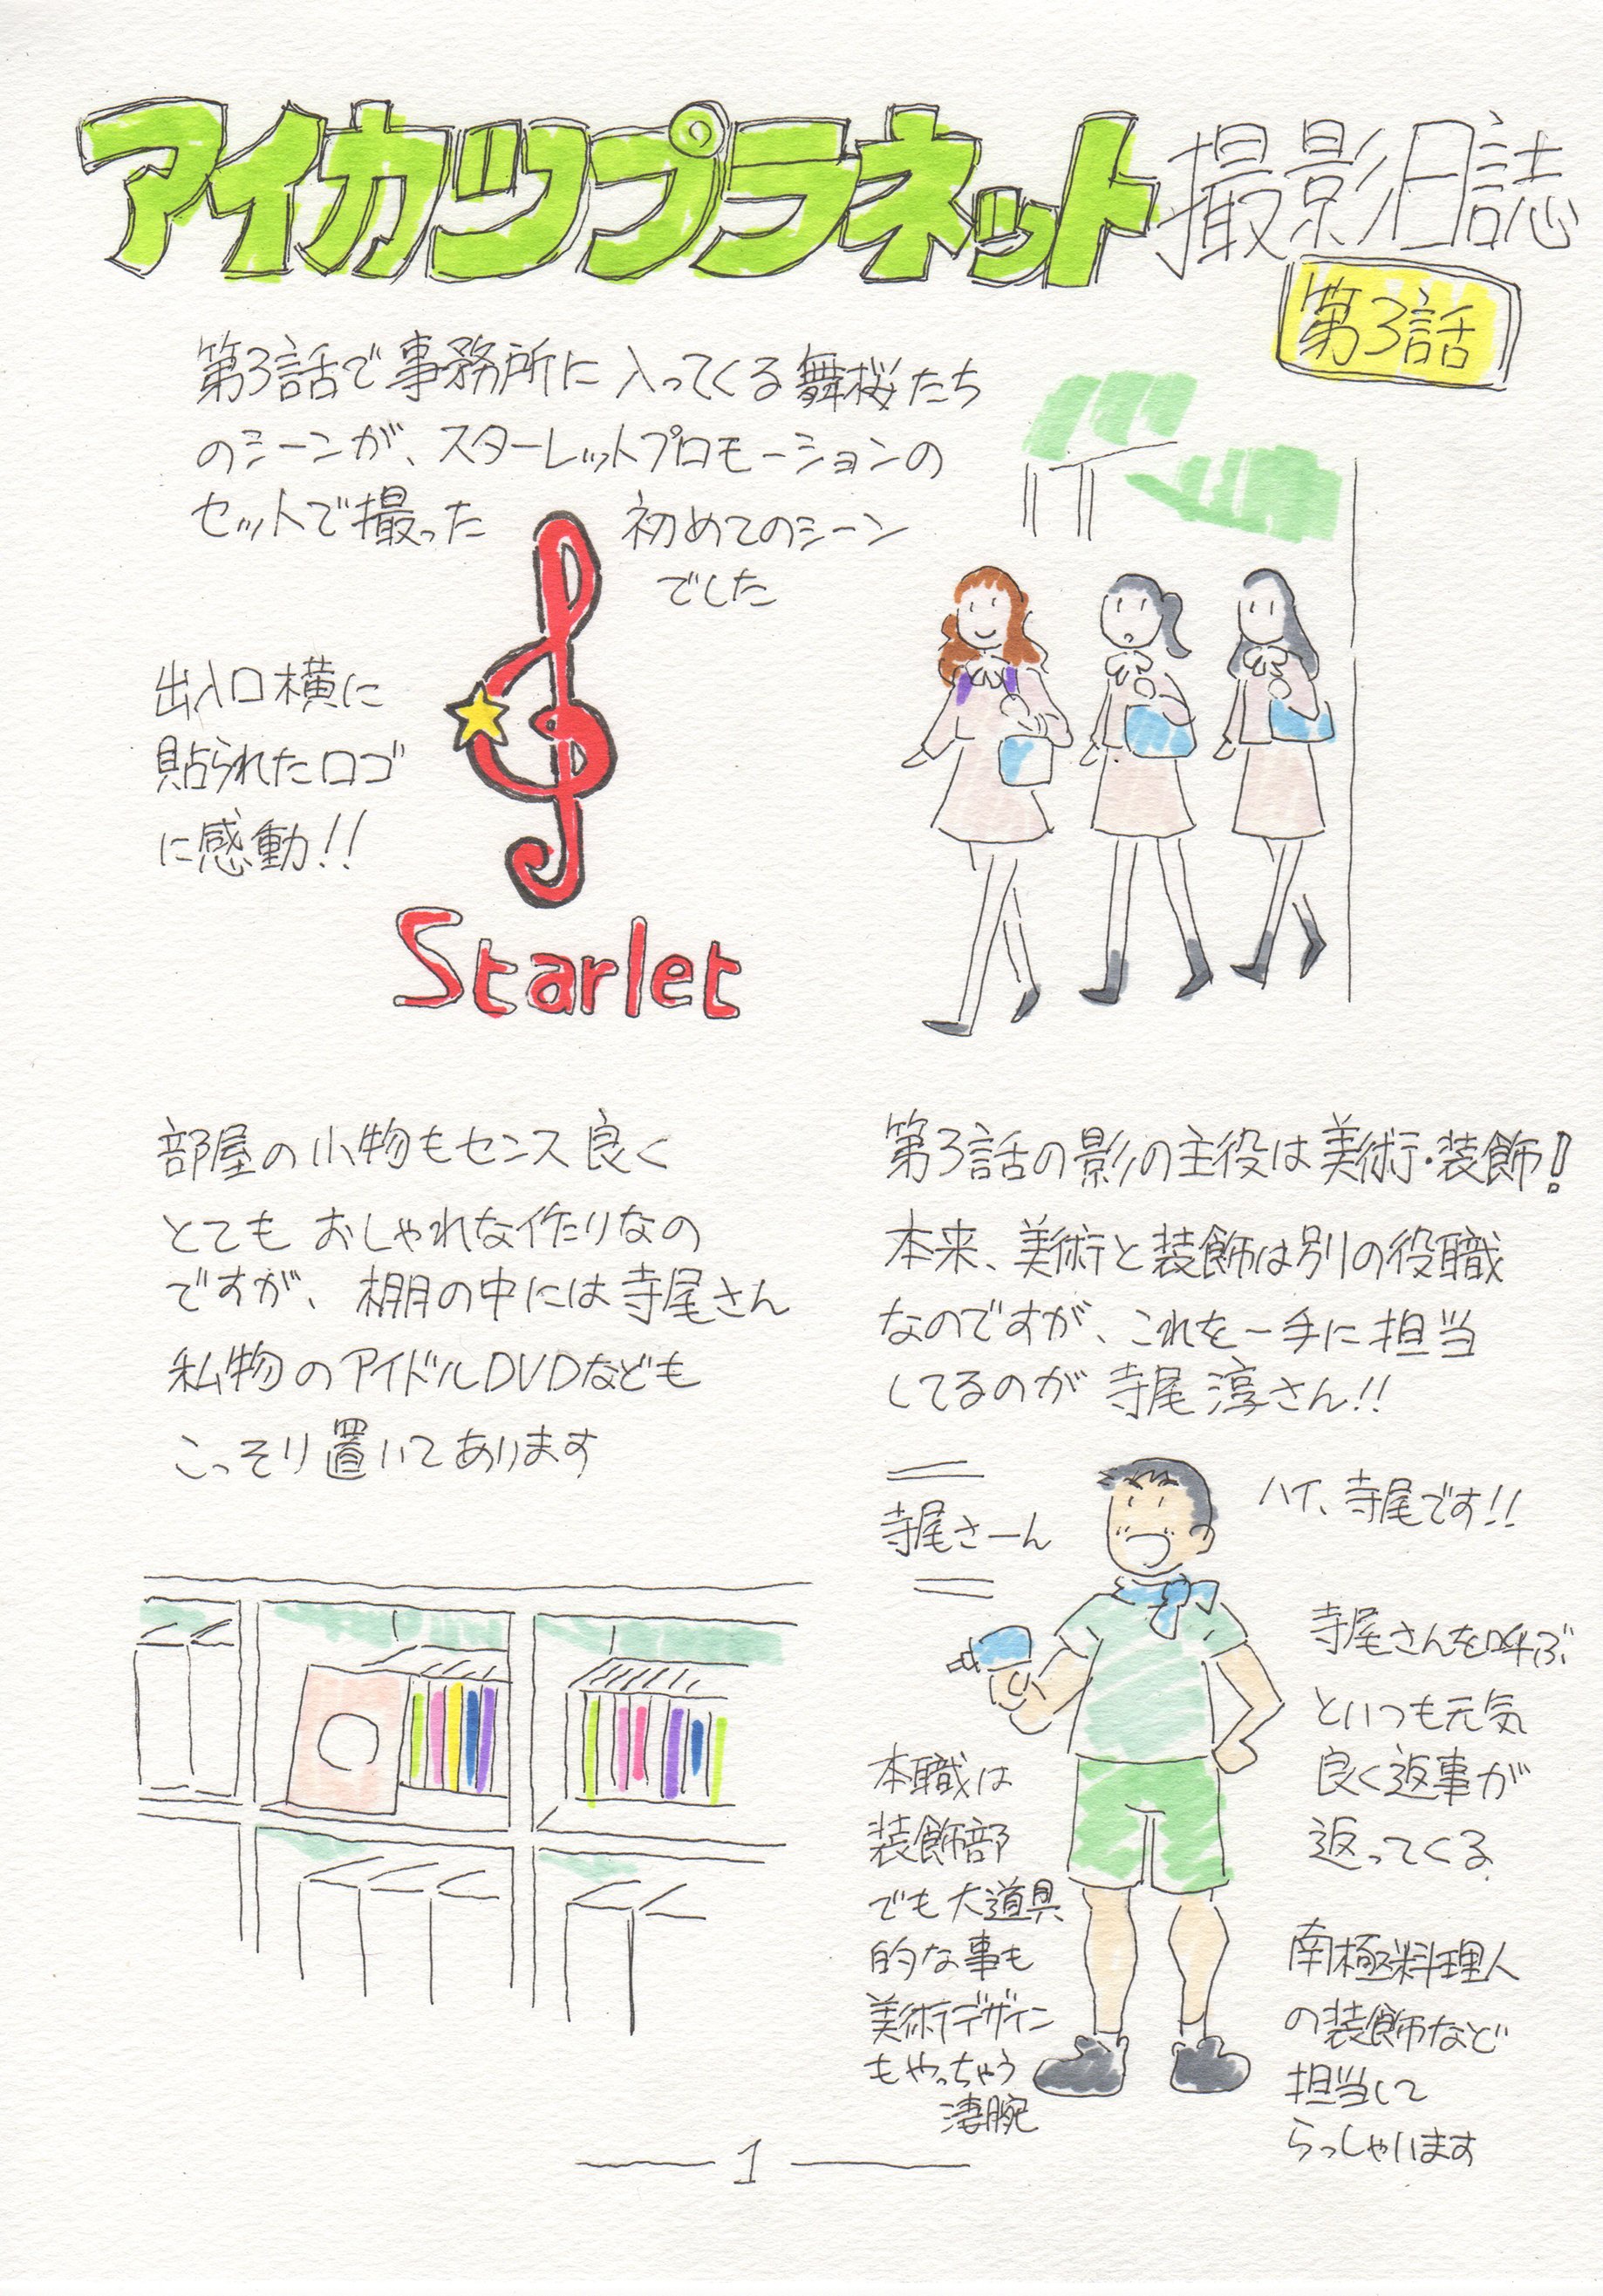 アイカツプラネット撮影日誌
第3話
第3話で事務所に入ってくる舞桜たち
のシーンが、スターレットプロモーションの
セットで撮った 初めてのシーン
でした
出入口横に
貼られたロゴ
に感動!!
Starlet
部屋の小物もセンス良く
とても おしゃれな作りなの
ですが、棚の中には寺尾さん
私物のアイドルDVDなども
こっそり置いてあります
第3話の影の主役は美術・装飾!
本来、美術と装飾は別の役職
なのですが、これを一手に担当
してるのが寺尾淳さん!!
寺尾さーん
ハイ、寺尾です!!
寺尾さんを呼ぶ
といつも元気
良く返事が
返ってくる
本職は
装飾部
でも大道具
的な事も
美術デザイン
もやっちゃう
凄腕
南極料理人
の装飾など
担当して
らっしゃいます
1